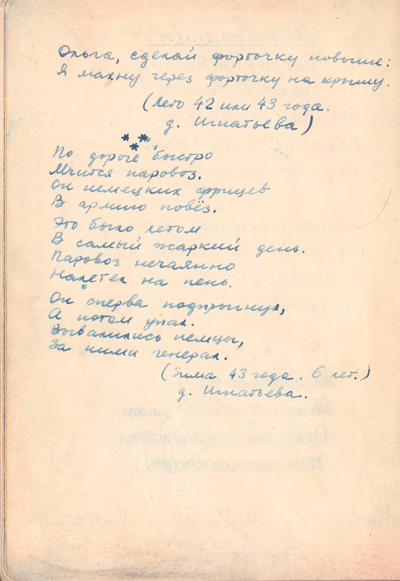 Ольга, сделай форточку повыше:
Я махну через форточку на крышу.
(Лето 42 или 43 года.
д. Игнатьева)
* * *
По дороге быстро
Мчится паровоз.
Он немецких фрицев
В армию повёз.
Это было летом
В самый жаркий день.
Паровоз нечаянно
Налетел на пень.
Он сперва подпрыгнул,
А потом упал.
Вывалились немцы,
За ними генерал.
(Зима 43 года. 6 лет.)
д. Игнатьева.